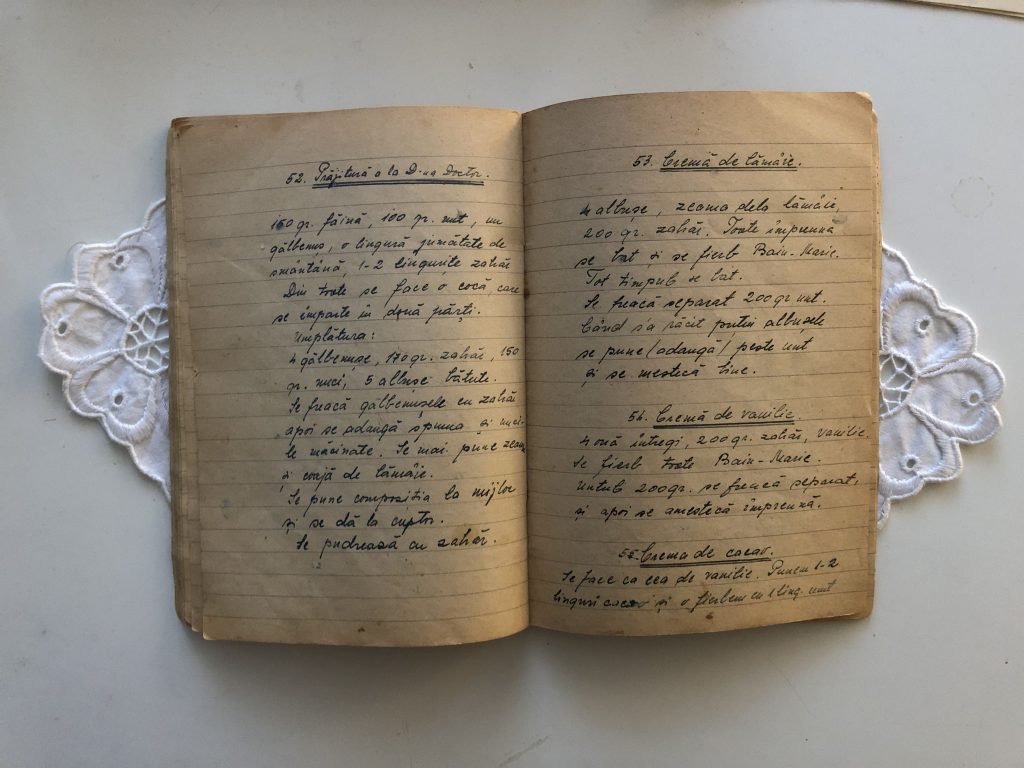 52. Prăjitură a la D-na Doctor.
150 gr. făină, 100 gr. unt, un
gălbenuș, o lingură jumătate de
smântână, 1-2 lingurițe zahăr
Din toate se face o cocă, care
se imparte în două părți.
Umplătura:
4 gălbenușe, 170 gr. zahăr, 150
gr. nuci, 5 albușe bătute.
Se freacă gălbenușele cu zahăr
apoi se adangă spuma și nuci-
le măcinate. Se mai pune zeamă
și coajă de lămâie.
Se pune compoziția la mijloc
și se dă la cuptor.
Se pudrează cu zahăr.
53. Cremă de lămâie.
4 albușe, zeama dela lămâii,
200 gr. zahăr. Toate împreuna
se bat și se fierb Bain-Marie.
Tot timpul se bat.
Se freacă separat 200 gr unt.
Când s'a răcit puțin albușele
se pune /adangă/ peste unt
și se mestecă bine.
54. Cremă de vanilie.
4 ouă întregi, 200 gr. zahăr, vanilie.
Se fierb toate Bain-Marie.
Untul 200 gr. se freacă separat,
și apoi se amestecă împreună.
55. Crema de cacao.
Se face ca cea de vanilie. Punem 1-2
linguri cacao și o fierbem cu 1 ling. unt